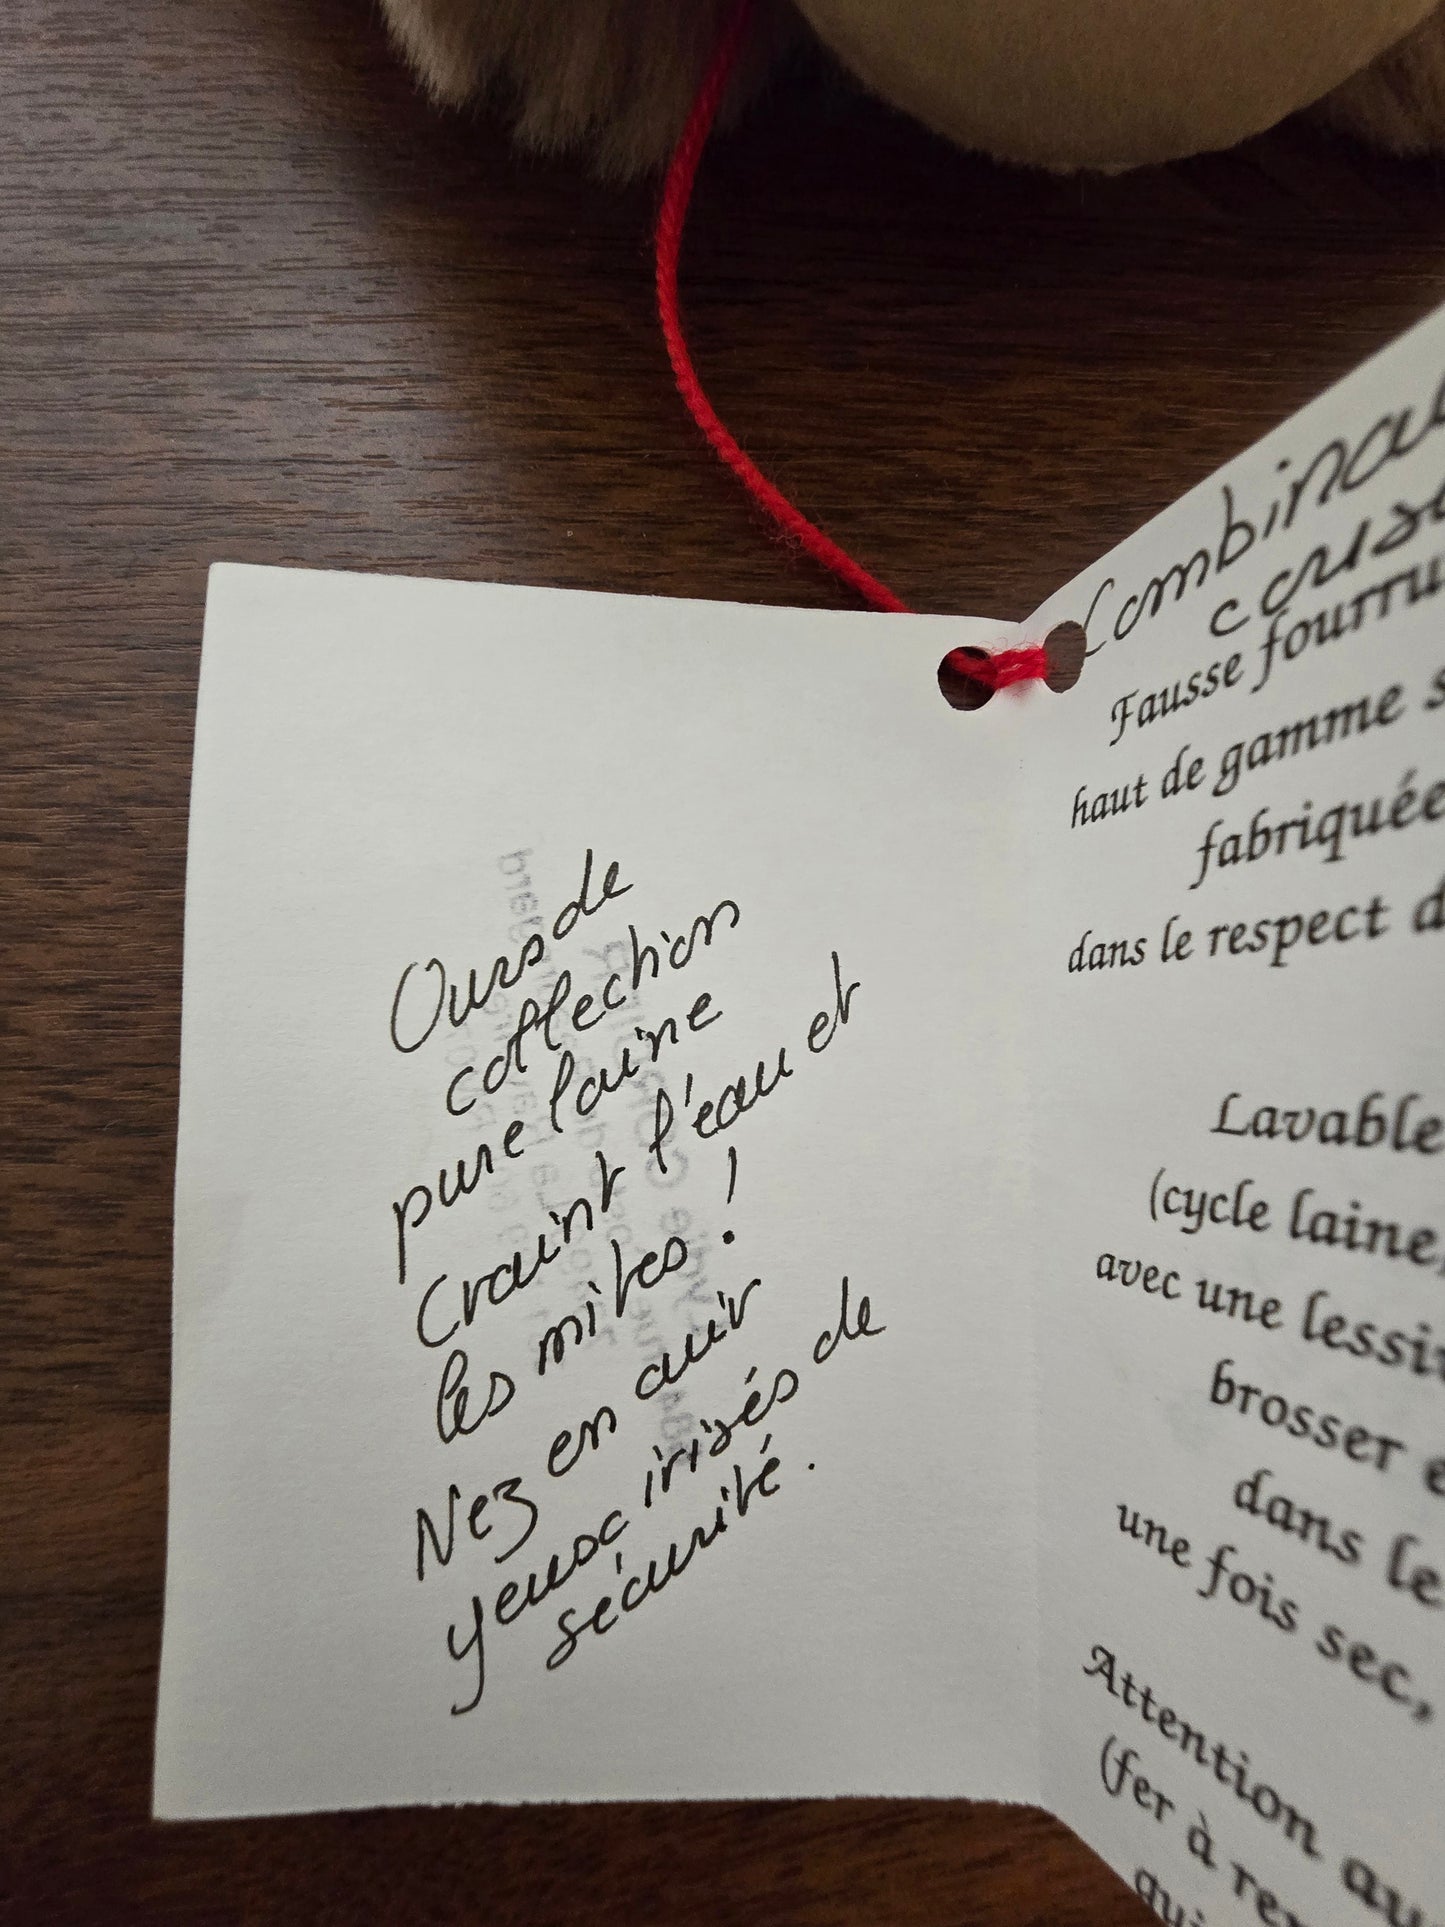 Ours de
collection
pure laine
Craint l'eau et
les mites !
Nez en cuir
yeux irisés de
sécurité.
cousu
Fausse
haut de gamme
fabriquée
dans le respect
Lavable
(cycle laine,
avec une
brosser
dans le
une fois sec,
Attention
(fer à